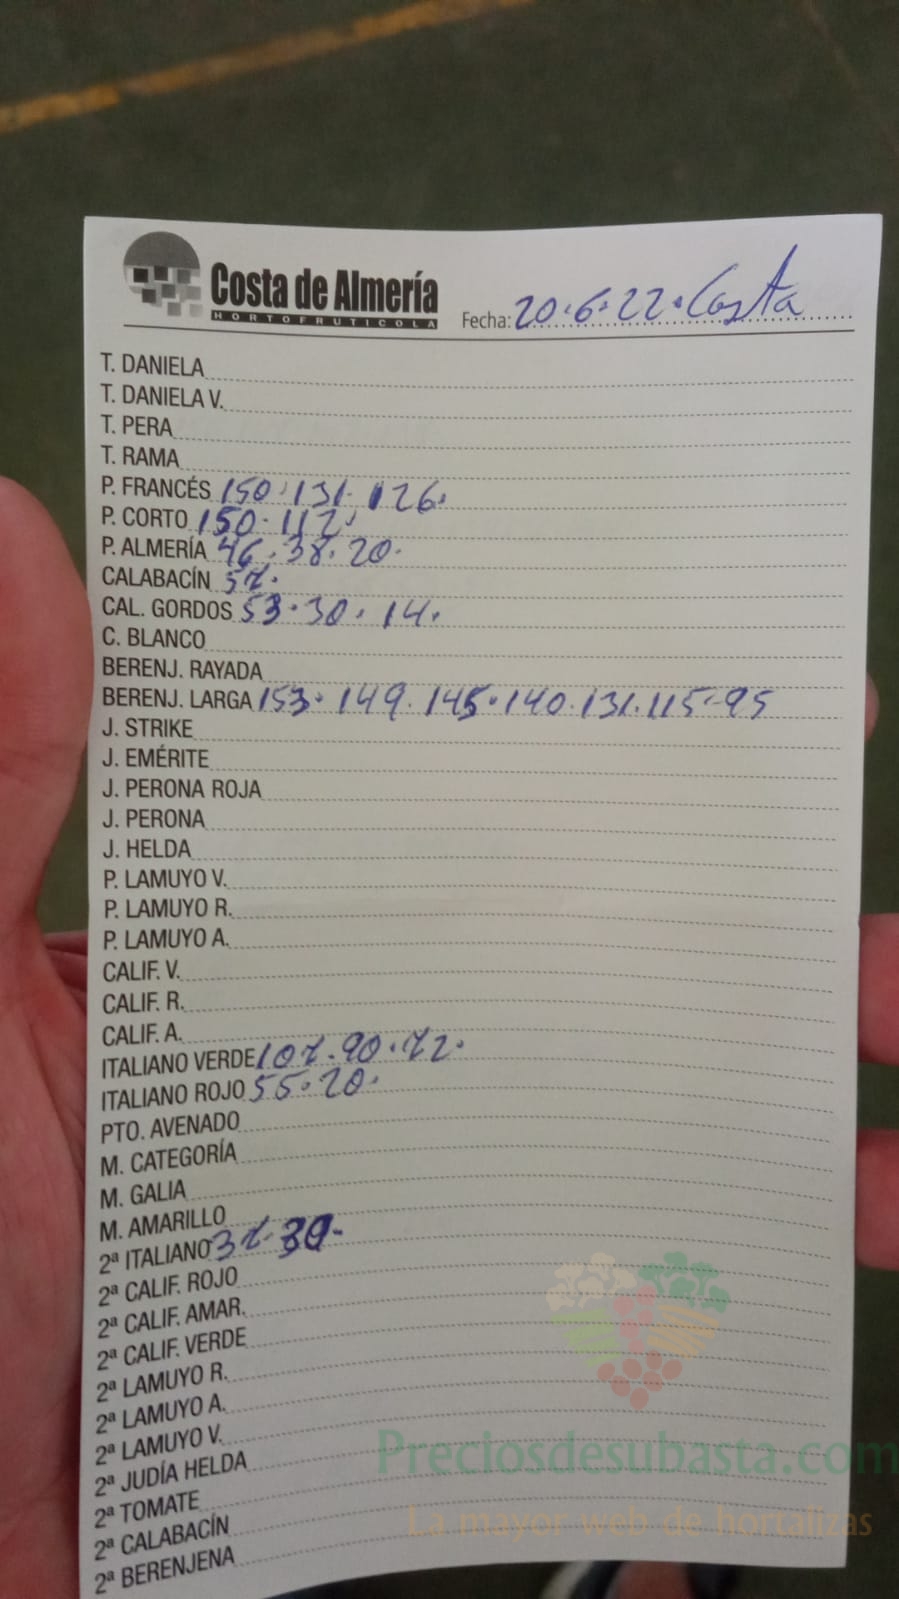 Costa de Almería
HORTOFRUTICOLA
Fecha: 20·6·22· Costa
T. DANIELA
T. DANIELA V.
T. PERA
T. RAMA
P. FRANCÉS 150·131·126·
P. CORTO 150·112·
P. ALMERÍA 46·38·20·
CALABACÍN 57·
CAL. GORDOS 53·30·14·
C. BLANCO
BERENJ. RAYADA
BERENJ. LARGA 153·149·145·140·131·115·95
J. STRIKE
J. EMÉRITE
J. PERONA ROJA
J. PERONA
J. HELDA
P. LAMUYO V.
P. LAMUYO R.
P. LAMUYO A.
CALIF. V.
CALIF. R.
CALIF. A.
ITALIANO VERDE 107·90·72·
ITALIANO ROJO 55·20·
PTO. AVENADO
M. CATEGORÍA
M. GALIA
M. AMARILLO
2ª ITALIANO 37·
2ª CALIF. ROJO
2ª CALIF. AMAR.
2ª CALIF. VERDE
2ª LAMUYO R.
2ª LAMUYO A.
2ª LAMUYO V.
2ª JUDÍA HELDA
2ª TOMATE
2ª CALABACÍN
2ª BERENJENA
Preciosdesubasta.com
La mayor web de hortalizas